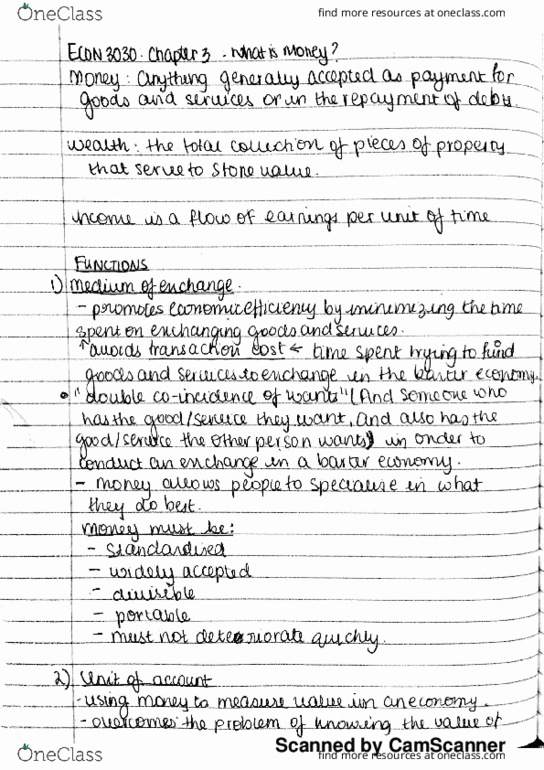 OneClass
find more resources at oneclass.com
ECON 3030 - Chapter 3 - What is Money?
Money: anything generally accepted as payment for
goods and services or in the repayment of debts.
Wealth: the total collection of pieces of property
that serve to store value.
income is a flow of earnings per unit of time
FUNCTIONS
1) Medium of exchange.
- promotes economic efficiency by minimizing the time
spent on exchanging goods and services.
↑ avoids transaction cost ← time spent trying to find
goods and services to exchange in the barter economy.
• "double co-incidence of wants" (find someone who
has the good/service they want, and also has the
good/service the other person wants) in order to
conduct an exchange in a barter economy.
- money allows people to specialise in what
they do best.
Money must be:
- standardised
- widely accepted
- divisible
- portable
- must not deteriorate quickly.
2) Unit of account
- using money to measure value in an economy.
- overcomes the problem of knowing the value of
Scanned by CamScanner
OneClass
find more resources at oneclass.com